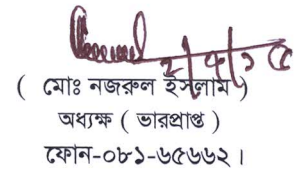 ( মোঃ নজরুল ইসলাম )
অধ্যক্ষ ( ভারপ্রাপ্ত )
ফোন-০৮১-৬৫৬৬২।